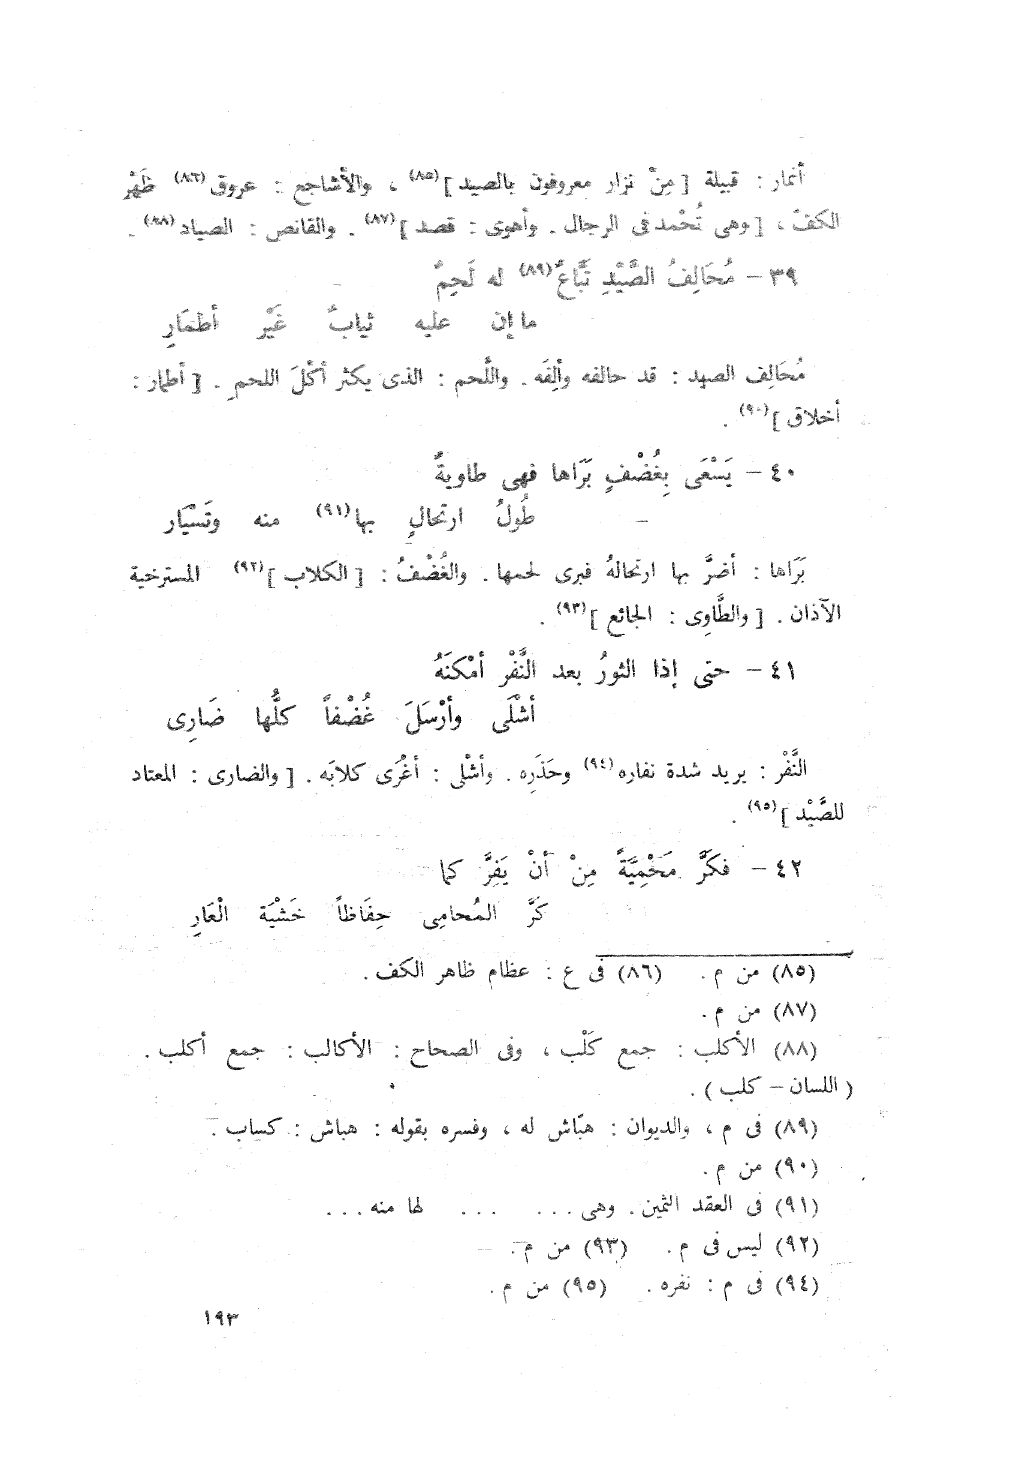 أنمار : قبيلة [ مِنْ نزار معروفون بالصيد ](٨٥) ، والأشاجع : عروق(٨٦) ظَهْر
الكفّ ، [ وهى تُحْمد فى الرجال . وأهوى : قصد ](٨٧) . والقانص : الصياد(٨٨) .
٣٩ – مُحَالِفُ الصَّيْدِ تَبَّاعٌ(٨٩) له لَحِمٌ
ما إن عليه ثيابٌ غَيْر أطمَارِ
مُحَالِف الصيد : قد حالفه وألِفَه . واللَّحم : الذى يكثر أكْلَ اللحمِ . [ أطمار :
أخلاق ](٩٠) .
٤٠ – يَسْعَى بِغُضْفٍ بَرَاها فهى طاويةٌ
طُولُ ارتحالٍ بها(٩١) منه وتَسْيَار
بَرَاها : أضرَّ بها ارتحالهُ فبرى لحمها . والغُضْفُ : [ الكلاب ](٩٢) المسترخية
الآذان . [ والطَّاوِى : الجائع ](٩٣) .
٤١ – حتى إذا الثورُ بعد النَّفْرِ أمْكنَهُ
أشْلَى وأرْسَلَ غُضْفاً كلُّها ضَارِى
النَّفْر : يريد شدة نفاره(٩٤) وحَذَرِه . وأشْلى : أغْرَى كلابَه . [ والضارى : المعتاد
للصَّيْد ](٩٥) .
٤٢ – فكَرَّ مَحْمِيَّةً مِنْ أنْ يَفِرَّ كما
كَرَّ المُحامِى حِفَاظاً خَشْيَة الْعَارِ
(٨٥) من م . (٨٦) فى ع : عظام ظاهر الكف .
(٨٧) من م .
(٨٨) الأكلب : جمع كَلْب ، وفى الصحاح : الأكالب : جمع أكلب .
( اللسان – كلب ) .
(٨٩) فى م ، والديوان : هبّاش له ، وفسره بقوله : هباش : كساب .
(٩٠) من م .
(٩١) فى العقد الثمين . وهى . . . . . . لها منه . . .
(٩٢) ليس فى م . (٩٣) من م .
(٩٤) فى م : نفره . (٩٥) من م .
١٩٣